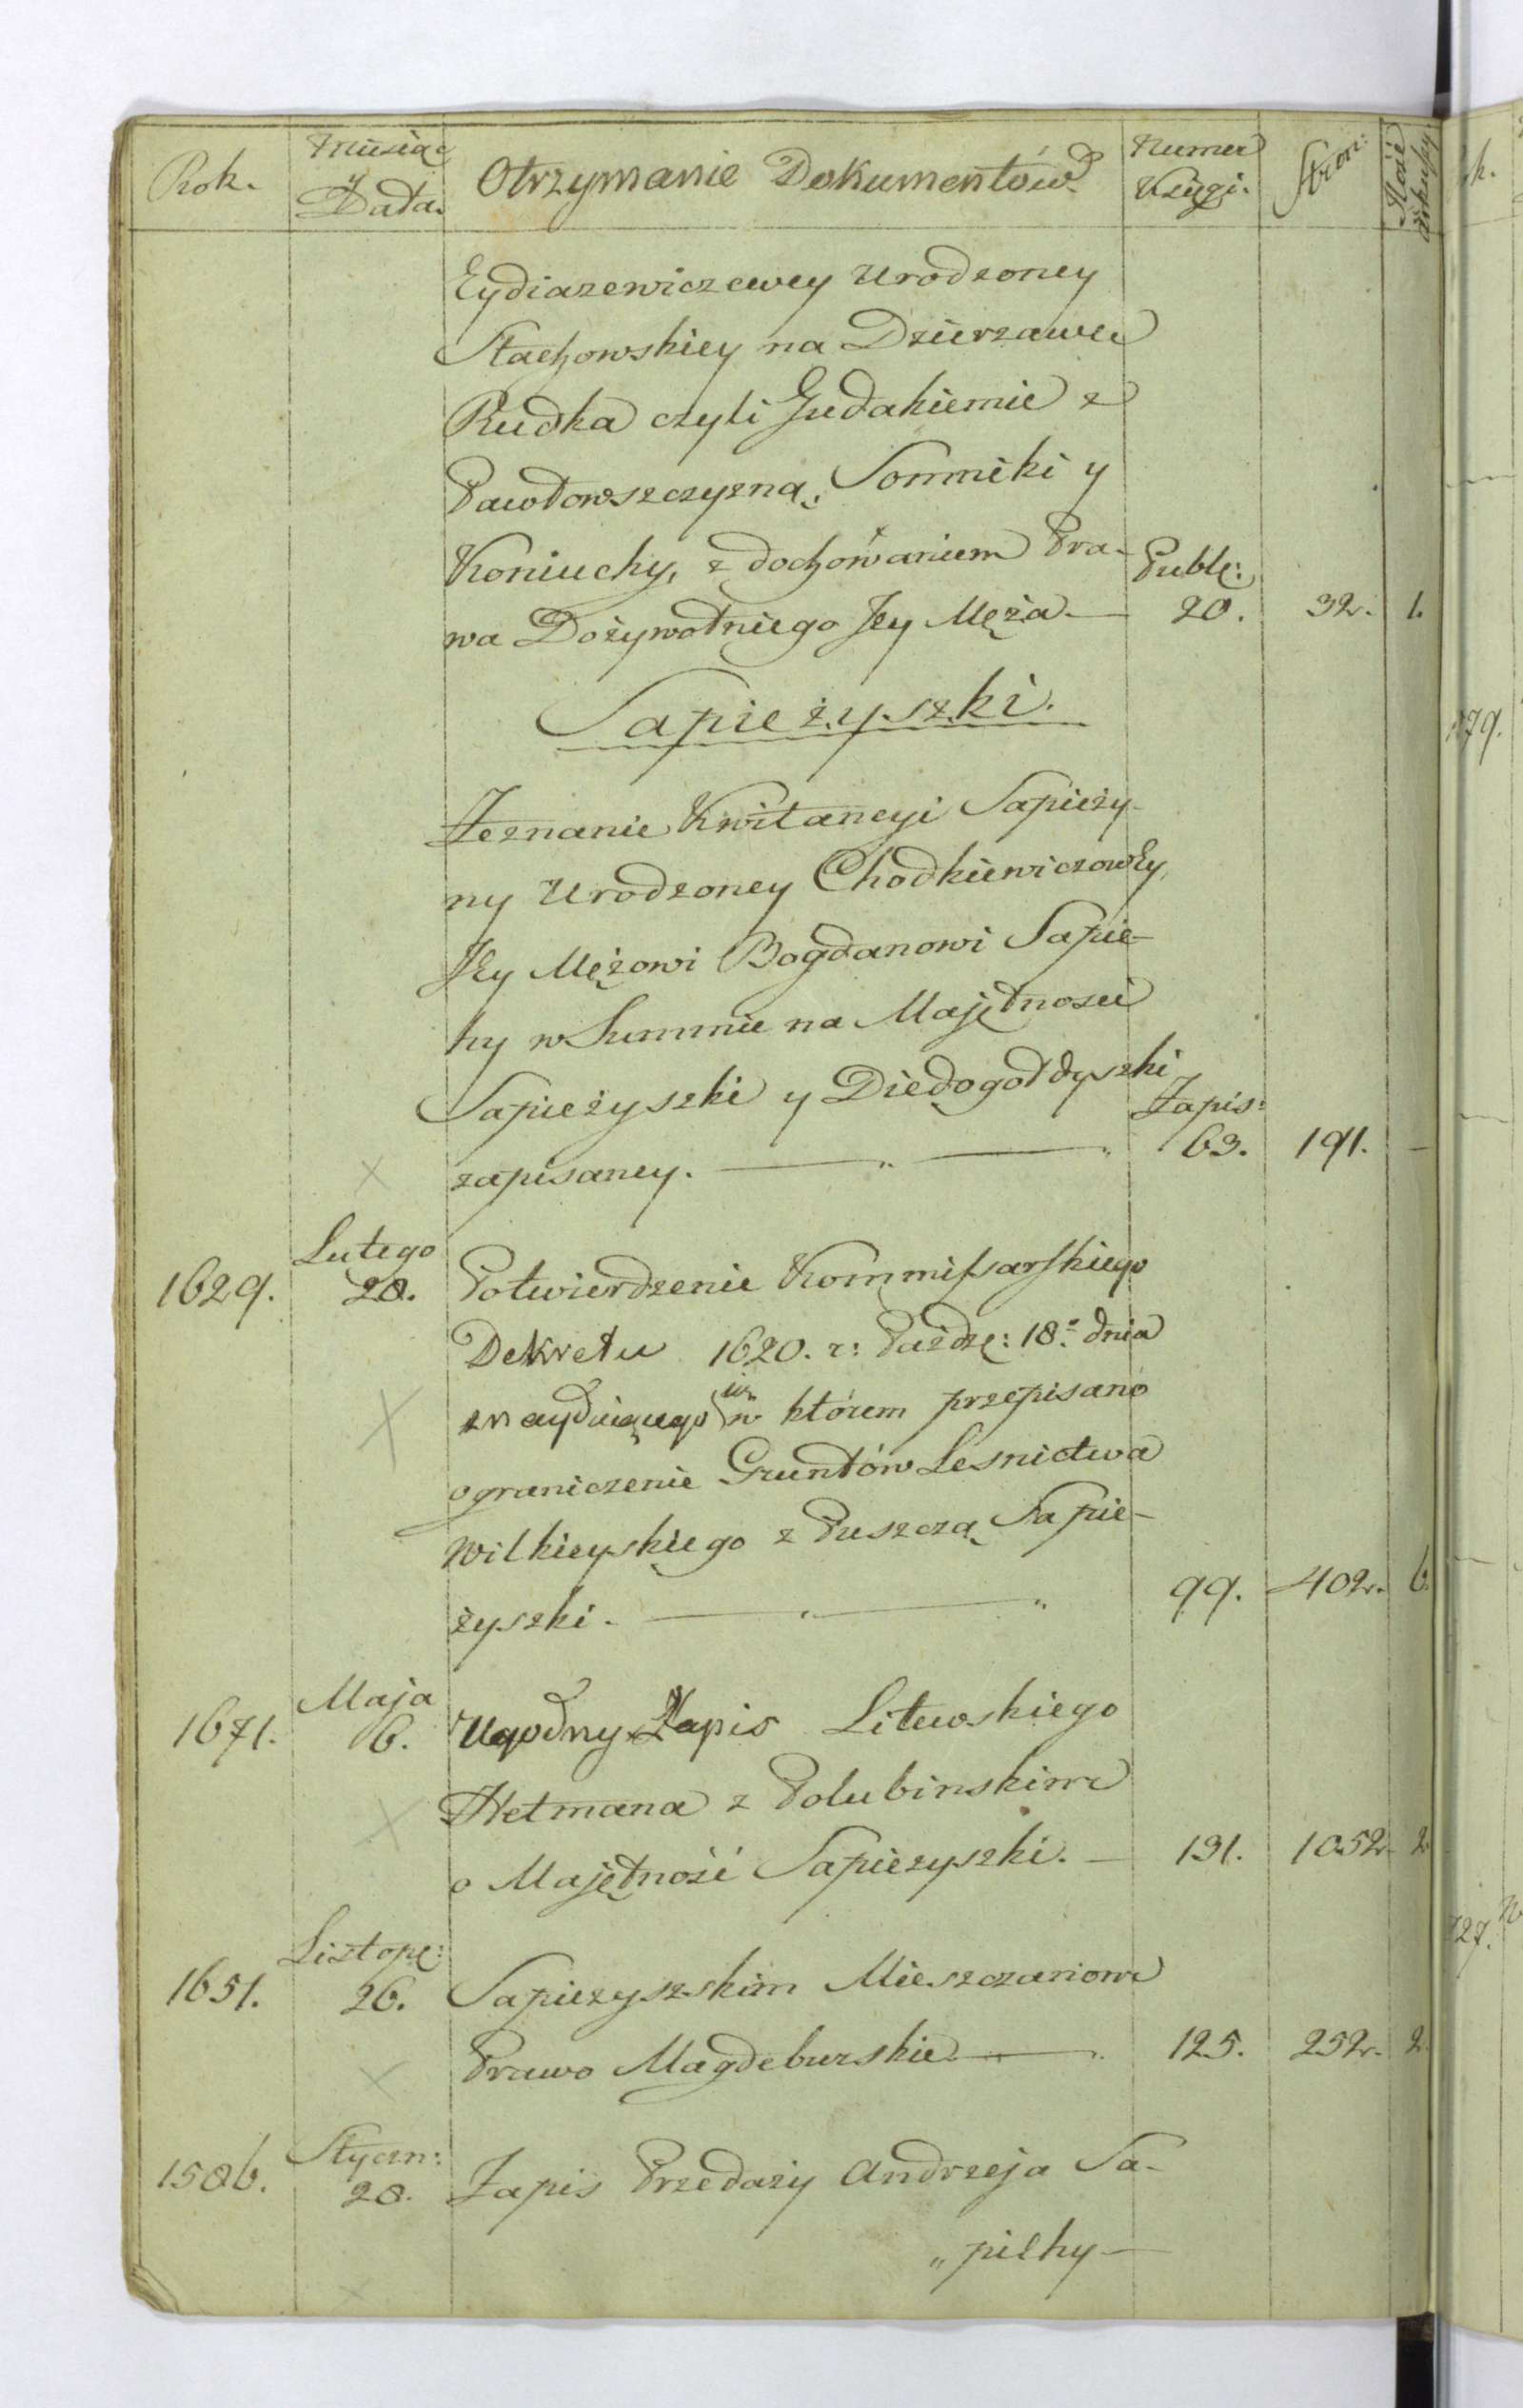 Rok.
Miesiąc
y
Data.
Otrzymanie Dokumentów
Numer
Księgi.
Stron:
Ilość
arkuszy
Eydiazewiczewey Urodzoney
Stachowskiey na Dzierzawe
Rudka czyli Gudakiemie z
Pawłowszczyzną, Sonniki y
Koniuchy, z dochowaniem Pra-
wa Dożywotniego Jey Męża —
Publ:
20. 32. 1.
Sapieżyszki.
Zeznanie Kwitancyi Sapieży-
ny Urodzoney Chodkiewiczowey,
Jey Mężowi Bogdanowi Sapie-
hy w Summie na Majętnosci
Sapieżyszki y Diedogołdyszki
zapisaney. —
Zapis:
63. 191. —
1629. Lutego
28. Potwierdzenie Kommissarskiego
Dekretu 1620. r: Paźdz: 18. dnia
w którem przepisano
ograniczenie Gruntów Lesnictwa
Wilkieyskiego z Puszczą Sapie-
żyszki. — 99. 402. 6.
1671. Maja
6. Ugodny Zapis Litewskiego
Hetmana z Połubinskim
o Majętność Sapieżyszki. — 131. 1052. 2
1651. Listop:
26. Sapieżyszskim Mieszczaniom
Prawo Magdeburskie — 125. 252. 2.
1586. Styczn:
28. Zapis Przedaży Andrzeja Sa-
„piehy —